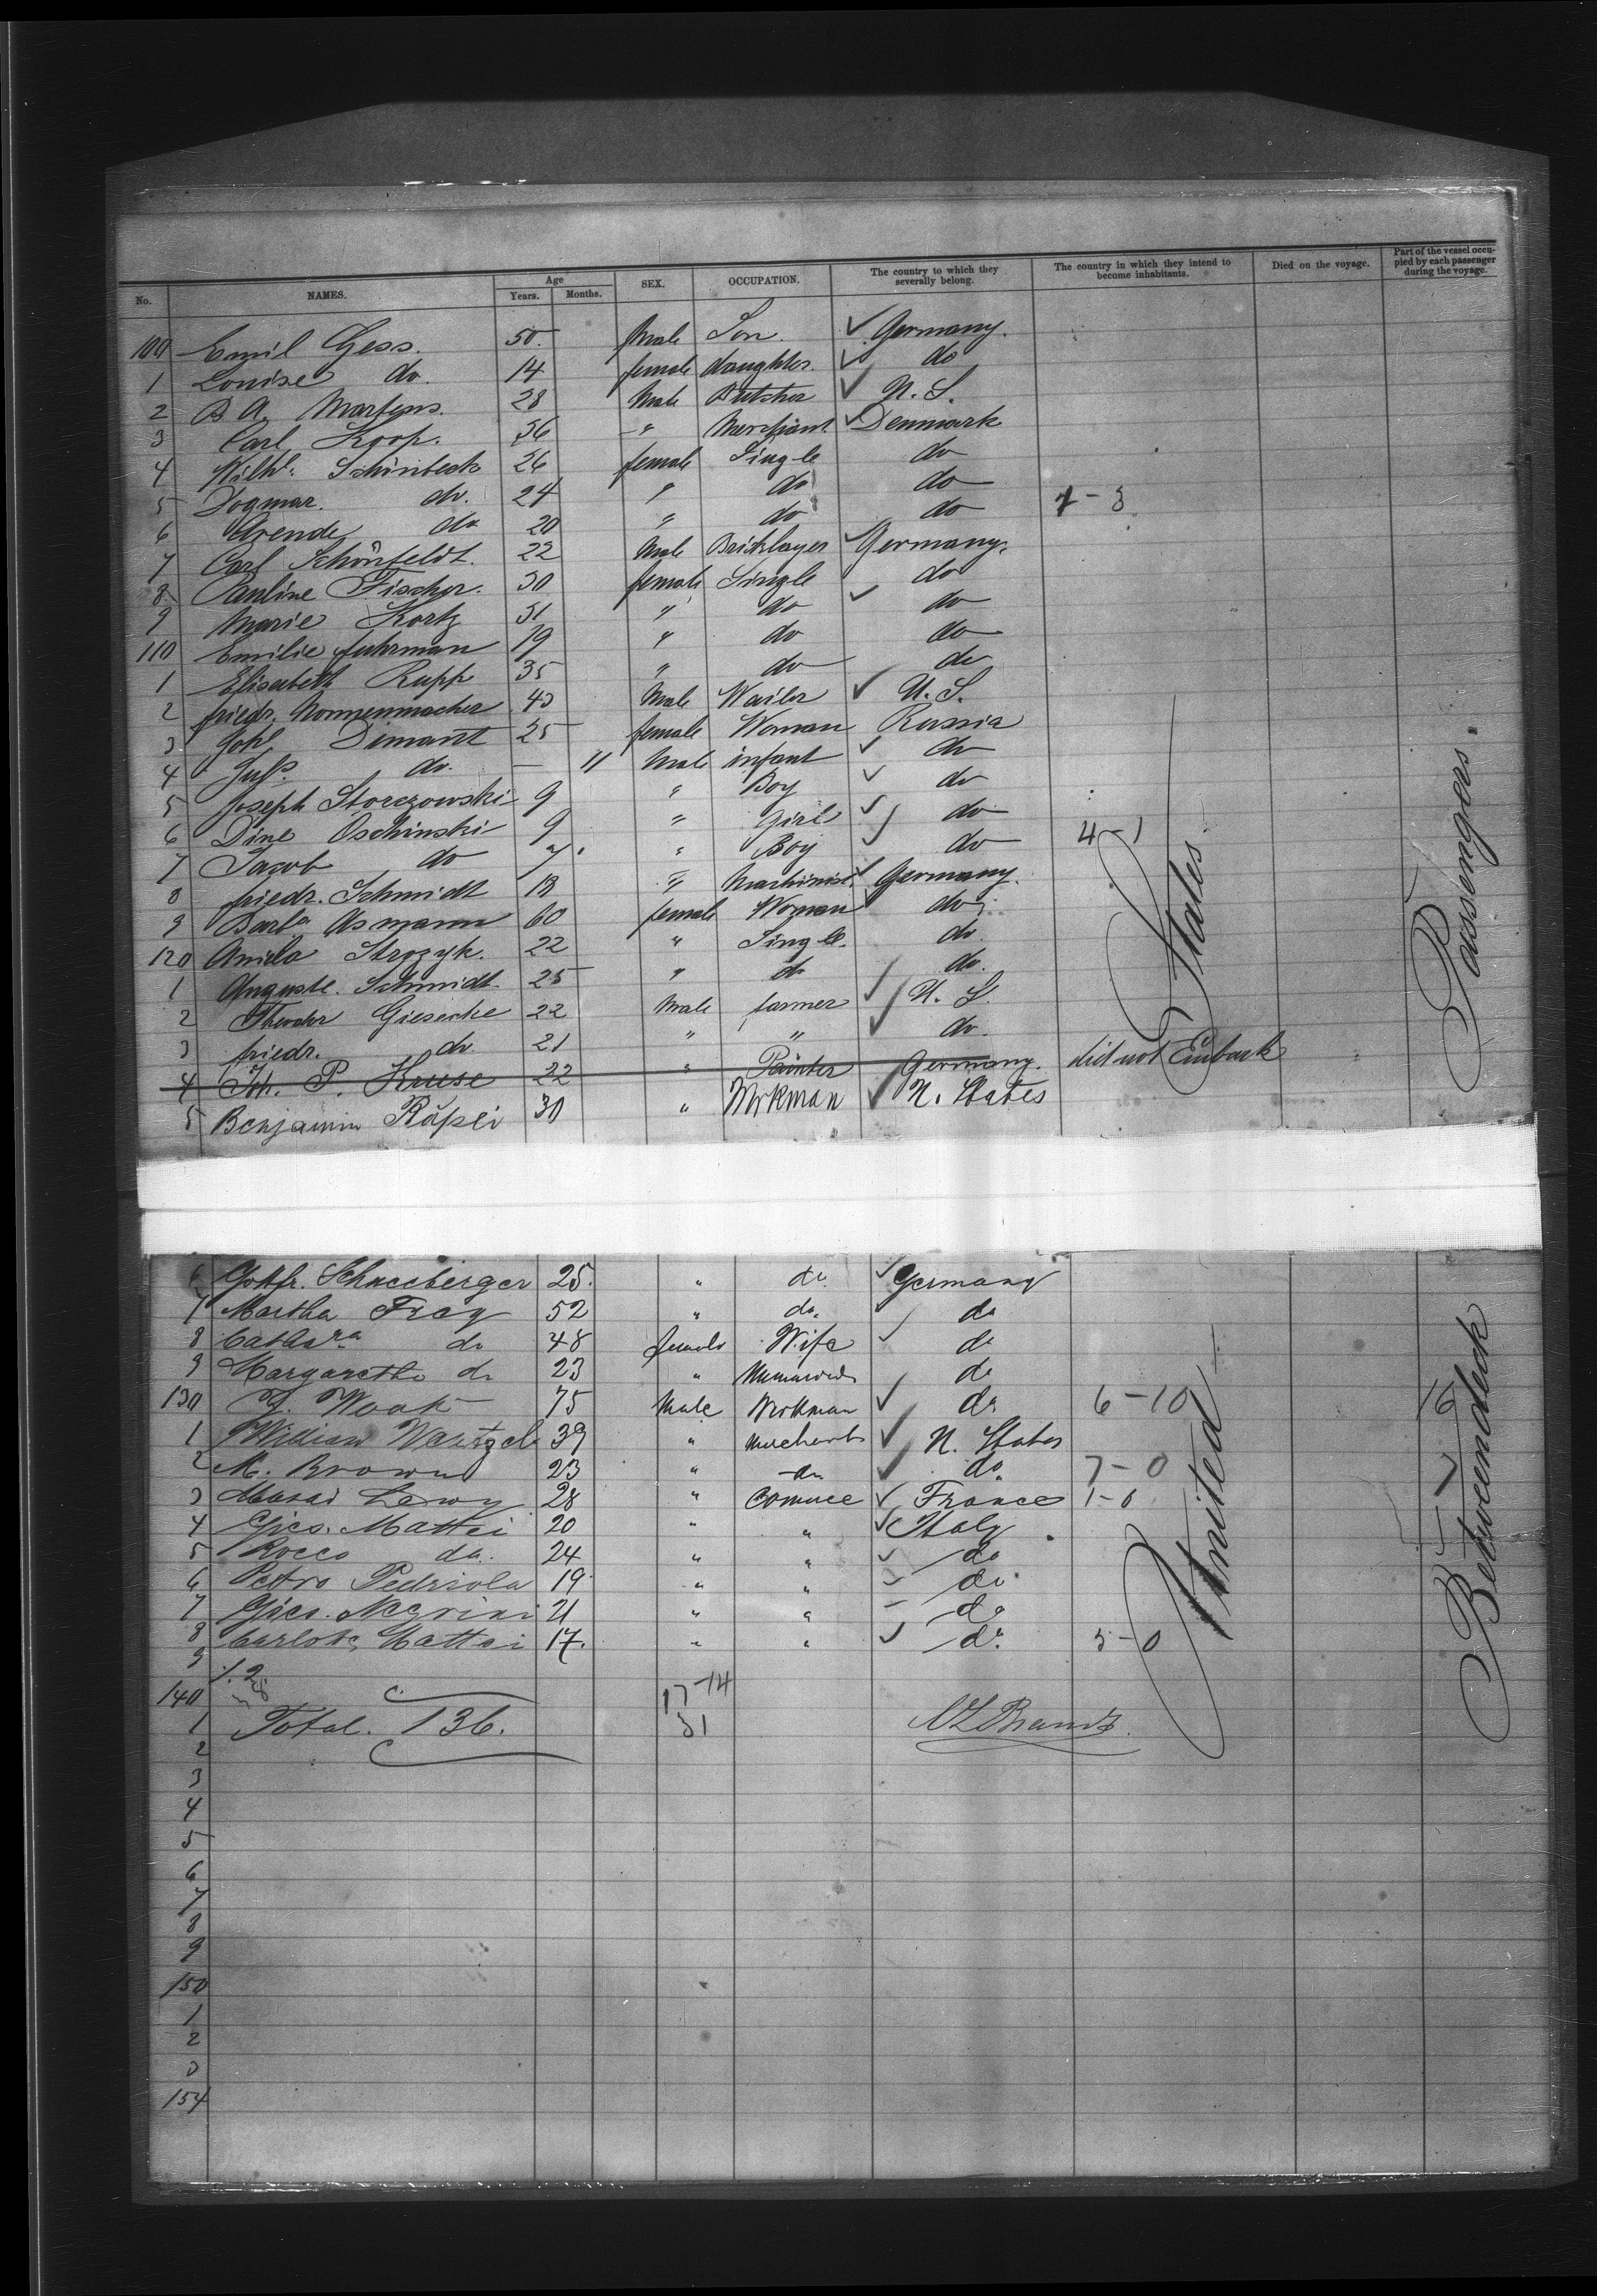 No. NAMES. Age Years. Months. SEX. OCCUPATION. The country to which they severally belong. The country in which they intend to become inhabitants. Died on the voyage. Part of the vessel occupied by each passenger during the voyage.
100 Emil Gess. 50. Male Son. Germany.
1 Louise do. 14 female daughter. do
2 B A. Martens. 28 Male Butcher U. S.
3 Carl Koop. 36 " Merchant Denmark
4 Wilhl. Schönbeck 26 female Single do
5 Dogmar. do. 24 " do do
6 Arende do 20 " do do 7-3
7 Carl Schönfeldt. 22 Male Bricklayer Germany.
8 Pauline Fischer. 30 female Single do
9 Marie Kortz 31 " do do
110 Emilie fuhrman 19 " do do
1 Elisabeth Rupp 35 " do do
2 friedr. Nonnenmacher 43 Male U. S.
3 Demant 25 female Woman Russia
4 do. — 11 Male infant do
5 Joseph Storczowski 9 " Boy do
6 Dine Oschinski 9 " Girl do
7 Jacob do 7 " Boy do 4-1
8 friedr. Schmidt 18 " Machinist Germany.
9 Barba Asmann 60 female Woman do
120 Anida Strozyk. 22 " Single. do.
1 Auguste. Schmidt. 25 " do do.
2 Theodor Giesecke 22 Male farmer U. S.
3 friedr. do 21 " " do.
4 Joh. P. Kruse 22 " Painter Germany. did not Embark
5 Benjamin Räpsi 30 " Wrkman U. States
6 Gottfr. Schneeberger 25. " do. Germany
7 Martha Frey 52 " do. do
8 Cathara do 48 female Wife do
9 Margaretha do 23 " do
130 J. Wook 75 Male Workman do 6-10
1 William Wentzel 39 " Merchant U. States
2 M. Brown 23 " do do. 7-0
3 Lewy 28 " France 1-0
4 Gico. Mattei 20 " " Italy
5 Rocco do. 24 " " do
6 Petro Pedriola 19 " " do
7 Gico. Negrini 21 " " do
8 Carlo Mattei 17. " " do. 5-0
9
140 17-14
1 Total. 136. 31
2
3
4
5
6
7
8
9
150
1
2
3
154
United States
Betweendeck Passengers.